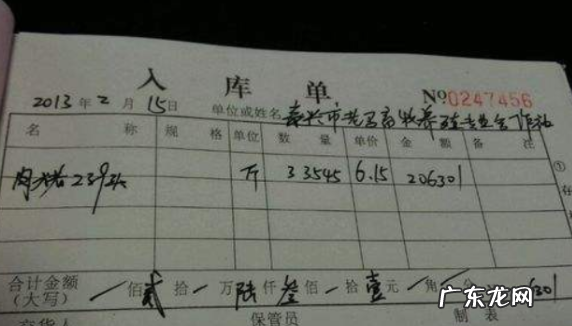 入库单
№0247456
2013年2月15日 单位或姓名 泰兴市 畜牧养殖专业合作社
名称 规格 单位 数量 单价 金额 备注
肉猪239头 斤 33545 6.15 206301
①
合计金额(大写) 佰贰拾 万陆仟叁佰 拾壹元 角
交货人 保管员 制表
广东龙网